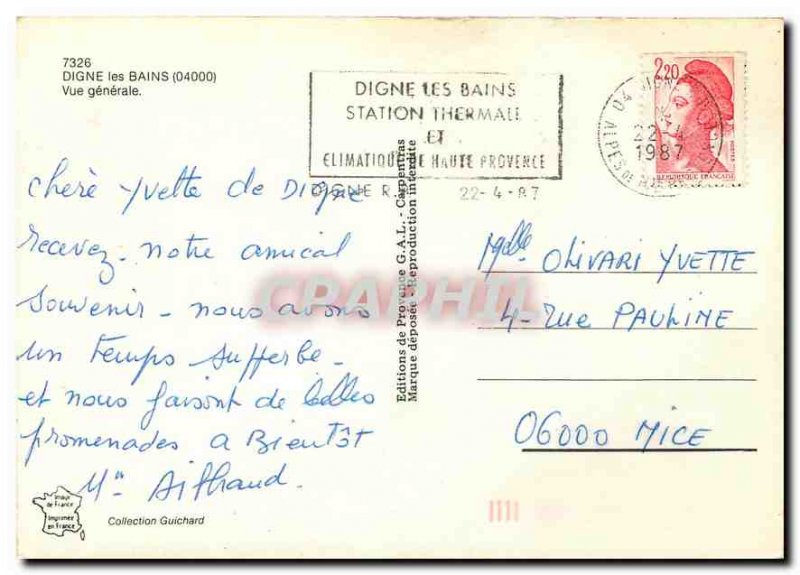 7326
DIGNE les BAINS (04000)
Vue générale.
DIGNE LES BAINS
STATION THERMALE
ET
CLIMATIQUE DE HAUTE PROVENCE
DIGNE R. 22-4-87
04 DIGNE
22-4
1987
ALPES DE HAUTE
2,20
REPUBLIQUE FRANÇAISE
POSTES
chère Yvette de Digne
recevez notre amical
souvenir - nous avons
un temps supperbe -
et nous faisont de belles
promenades a Bientôt
Mme Ailhaud.
Editions de Provence G.A.L. - Carpentras
Marque déposée - Reproduction interdite
CPAPHIL
Melle OLIVARI YVETTE
4 - rue PAULINE
06000 NICE
Imaux de France
Imprimée en France
Collection Guichard